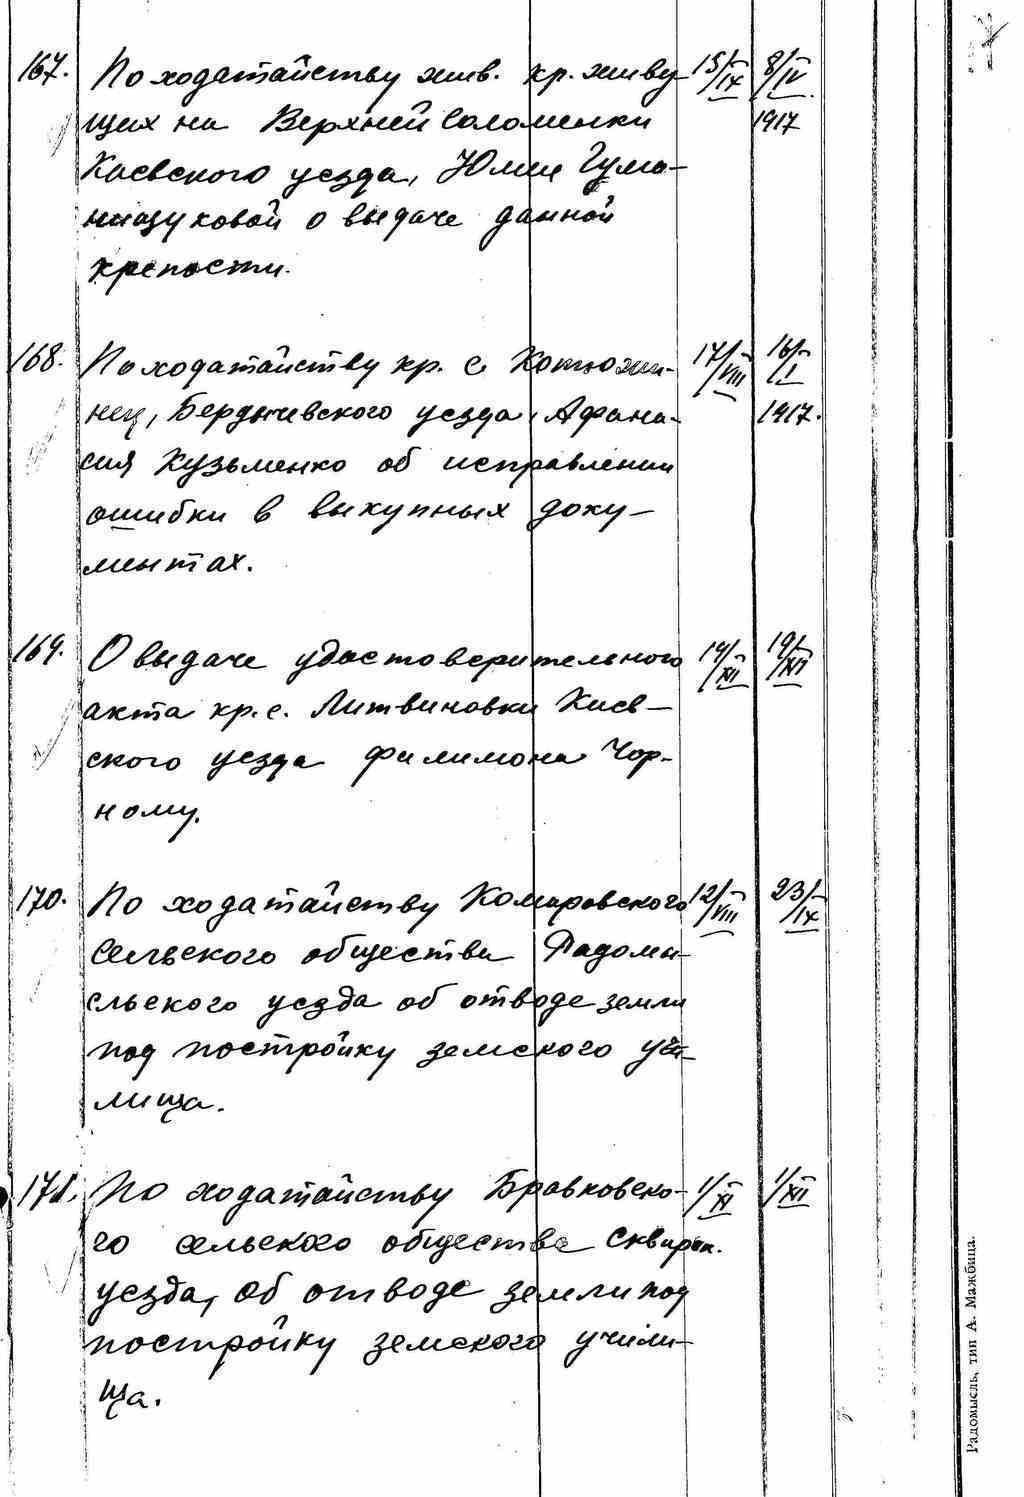 167. По ходатайству жив. кр. живу- 15/IX 8/IV
щих на Верхней Соломенки 1917
Киевского уезда, Юлии Гума-
нищуковой о выдаче данной
крепости.
168. По ходатайству кр. с. Котюжи- 17/VIII 16/I
нец, Бердичевского уезда, Афана- 1917.
сия Кузьменко об исправлении
ошибки в выкупных доку-
ментах.
169. О выдаче удостоверительного 19/XII 19/XII
акта кр. с. Литвиновки Киев-
ского уезда Филимона Чор-
ному.
170. По ходатайству Комаровского 12/VIII 23/IX
сельского общества Радомы-
сльского уезда об отводе земли
под постройку земского учи-
лища.
171. По ходатайству Бровковско- 1/XI 1/XII
го сельского общества Сквирск.
уезда, об отводе земли под
постройку земского учили-
ща.
Радомысль, тип А. Мажбица.